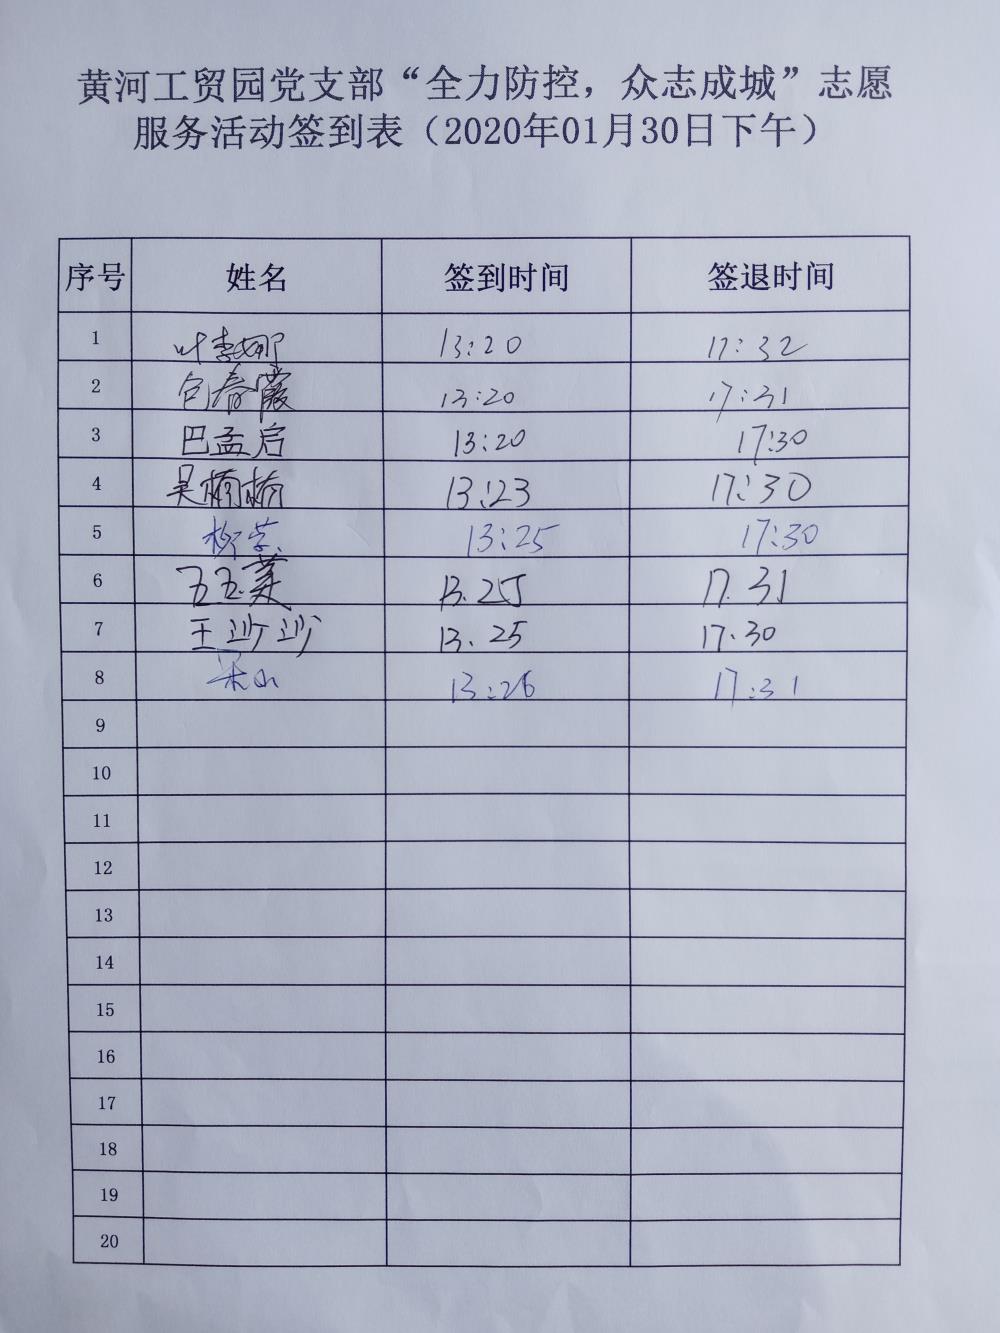 黄河工贸园党支部“全力防控，众志成城”志愿
服务活动签到表（2020年01月30日下午）
序号 姓名 签到时间 签退时间
1 叶李娜 13:20 17:32
2 包春霞 13:20 17:31
3 巴孟启 13:20 17:30
4 吴楠楠 13:23 17:30
5 柳 13:25 17:30
6 王玉英 13.25 17.31
7 王沙沙 13.25 17.30
8 13:26 17:31
9
10
11
12
13
14
15
16
17
18
19
20